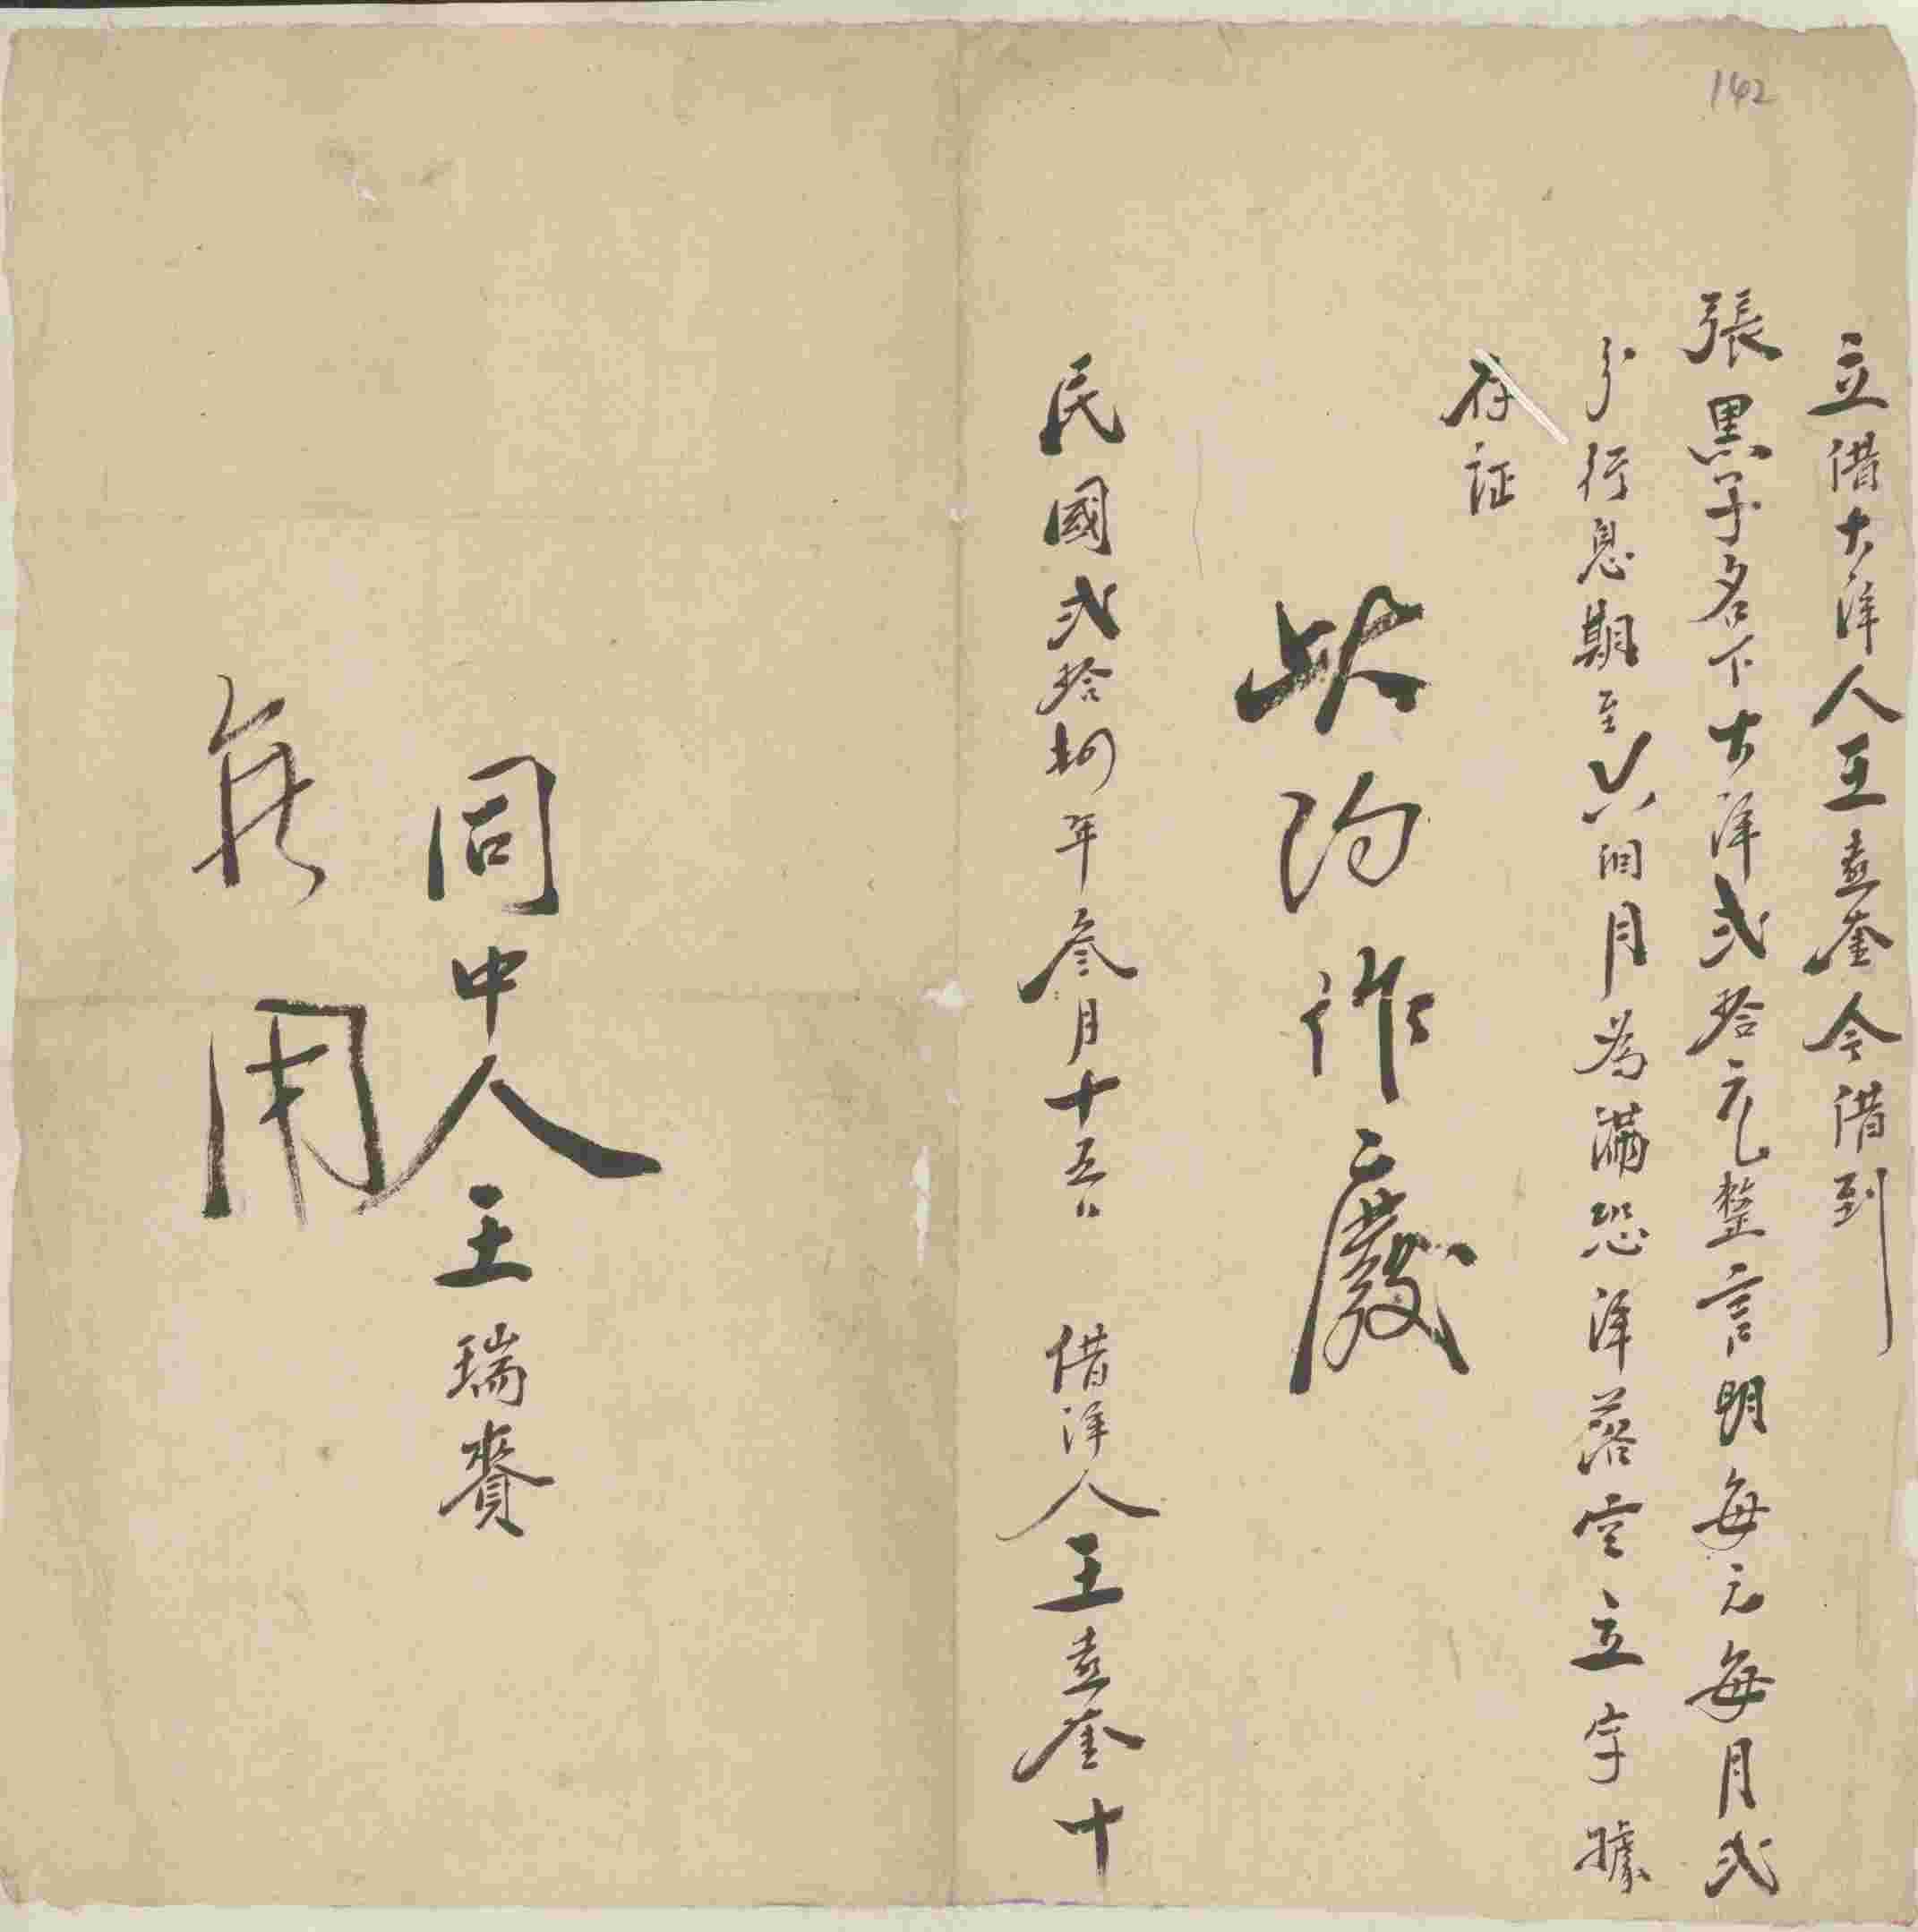 142
立借大洋人王意奎今借到
張黑子名下大洋弍拾元整言明每元每月弍
分行息期至六個月為滿恐洋落空立字據
存证
此约作廢
民國弍拾捌年叁月十五日 借洋人王意奎十
同中人王瑞賚
無用